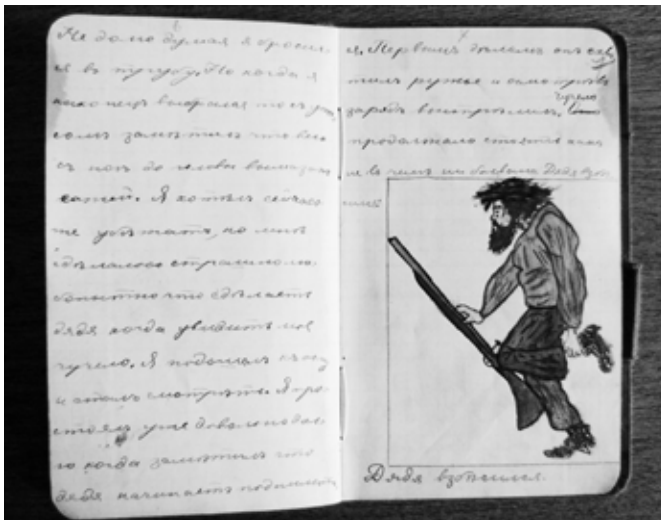 Не долго думая я бросил
ся въ трубу. Но когда я
нако нецъ выбрался то съ ужа
сомъ замѣтилъ что весь
съ ногъ до головы вымазанъ
сажей. Я хотѣлъ сейчасъ
же убѣжать, но мнѣ
сдѣлалось страшно лю
бопытно что сдѣлаетъ
дядя когда увидитъ мое
чучело. Я подошелъ къ окну
и сталъ смотрѣть. Я про
стоялъ уже довольно дол
го когда замѣтилъ что
дядя начинаетъ поднимать
ся. Первымъ дѣломъ онъ схва
тилъ ружье и осмотрѣвъ
чучело
зарядъ выстрѣлилъ.
продолжало стоять какъ
ни въ чемъ ни бывало Дядя взбѣ
сился
Дядя взбѣсился.